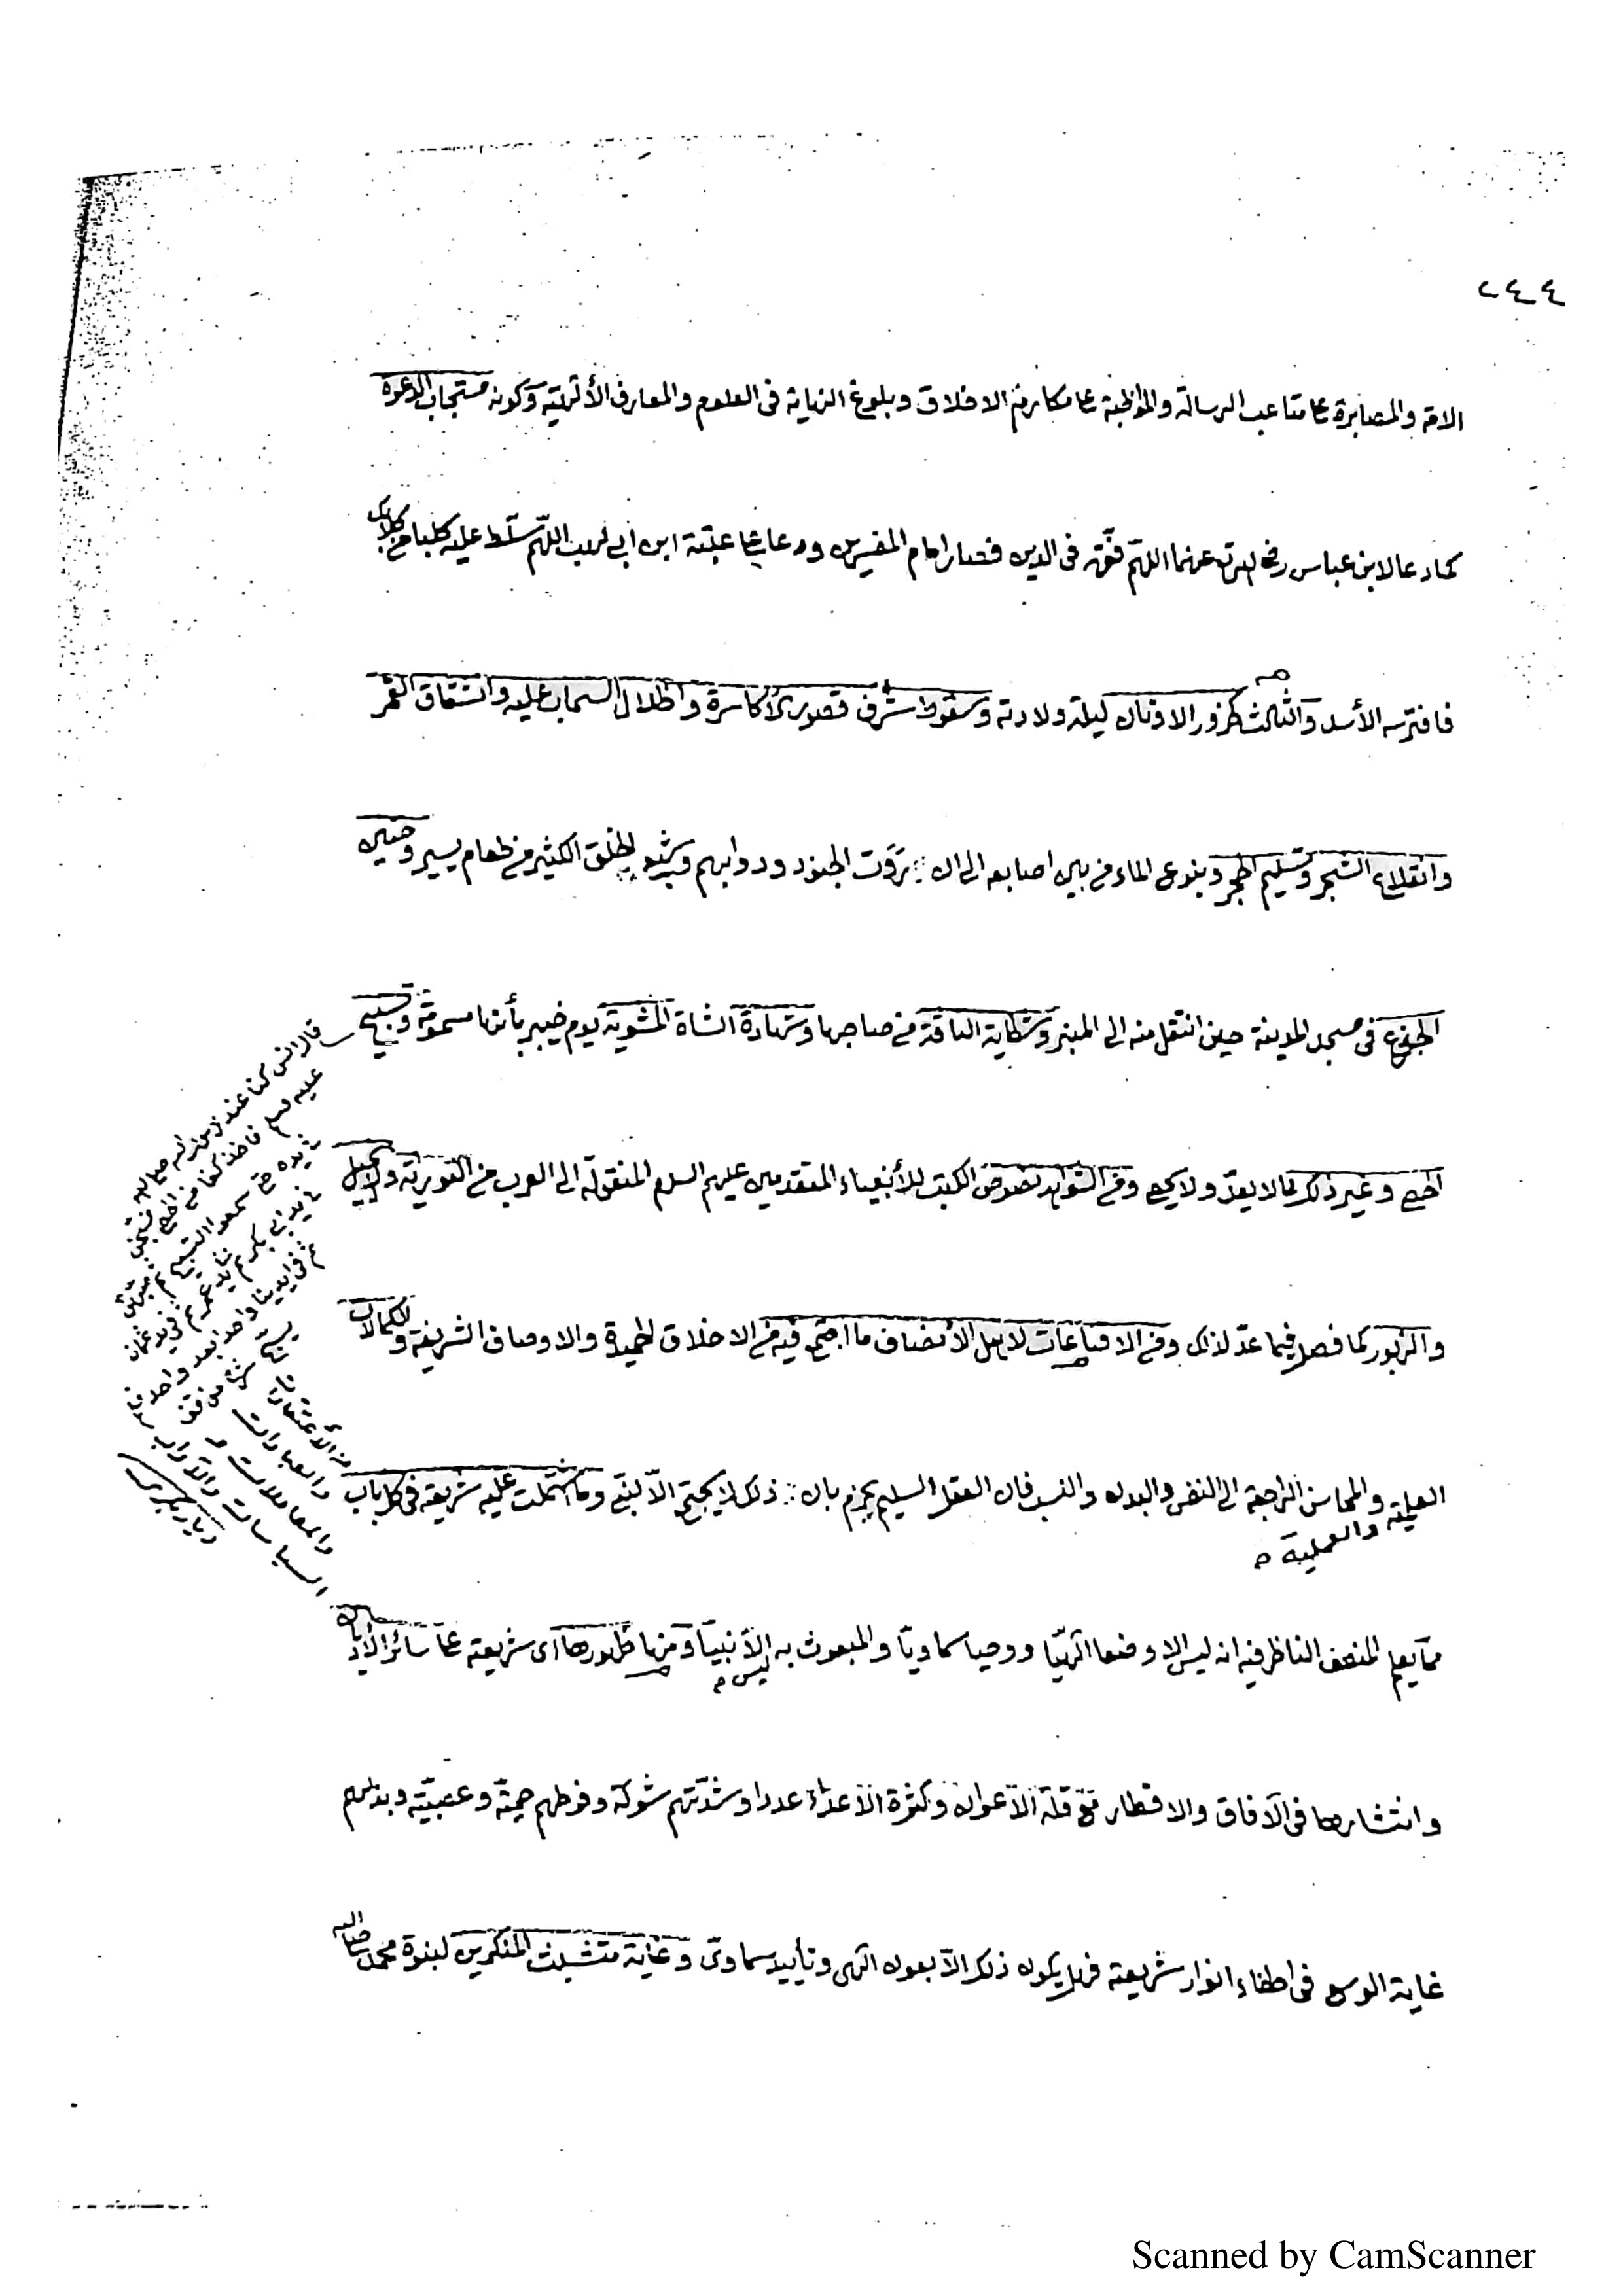 ٢٤٤
الامة والمصابرة على متاعب الرسالة والمواظبة على مكارم الاخلاق وبلوغ النهاية فى العلوم والمعارف الألهية وكونه مستجاب الدعوة
كما دعا لابن عباس رضى الله عنهما اللهم فقّهه فى الدين فصار امام المفسرين ودعا على عتبة ابن ابى لهب اللهم سلّط عليه كلبا من كلابك
فافترسه الأسد والثالث كخرور الاوثان ليلة ولادته وسقوط شرف قصور الاكاسرة واظلال السحاب عليه وانشقاق القمر
وانقلاع الشجر وتسليم الحجر ونبوع الماء من بين اصابعه الى ان تروت الجنود ودوابهم وشبع الخلق الكثير من طعام يسير وحنين
الجذع فى مسجد المدينة حين انتقل منه الى المنبر وشكاية الناقة من صاحبها وشهادة الشاة المشوية يوم خيبر بأنها مسمومة وتسبيح
الحصى وغير ذلك مما لا يعد ولا يحصى ومن الشواهد نصوص الكتب للأنبياء المتقدمين عليهم السلم المنقولة الى العرب من التورية والانجيل
والزبور كما فصل فيما عدّ لذلك ومن الاقناعات لاهل الأنصاف ما اجتمع فيه من الاخلاق الحميدة والاوصاف الشريفة والكمالات
العلمية والمحاسن الراجعة الى النفس والبدن والنسب فان العقل السليم يجزم بان ذلك لا يجتمع الا لنبى وما اشتملت عليه شريعته فى كل باب
والعملية م
مما يعلم المنصف الناظر فيه انه ليس الا وضعا الهيا ووحيا سماويا والمبعوث به ليس الا نبيا ومنها ظهورها اى شريعته على سائر الأديان
وانتشارها فى الآفاق والاقطار مع قلة الاعوان وكثرة الاعداء عددا وشدّتهم شوكة وفرطهم حمية وعصبية وبذلهم
غاية الوسع فى اطفاء انوار شريعته فهل يكون ذلك الا بعون الهى وتأييد سماوى وغاية متشبث المنكرين لنبوة محمد صلى الله
قال انس كنا عند رسول الله صلى الله
عليه وسلم فاخذ كفا من الحصى فسبّحن
فى يده حتى سمعنا التسبيح ثم صبّهن
فى يد ابى بكر ثم فى يد عمر ثم فى يد عثمان
ثم فى ايدينا واحدا بعد واحد
من الأعتقادات
والعبادات
والمعاملات و
السياسات والآداب
Scanned by CamScanner